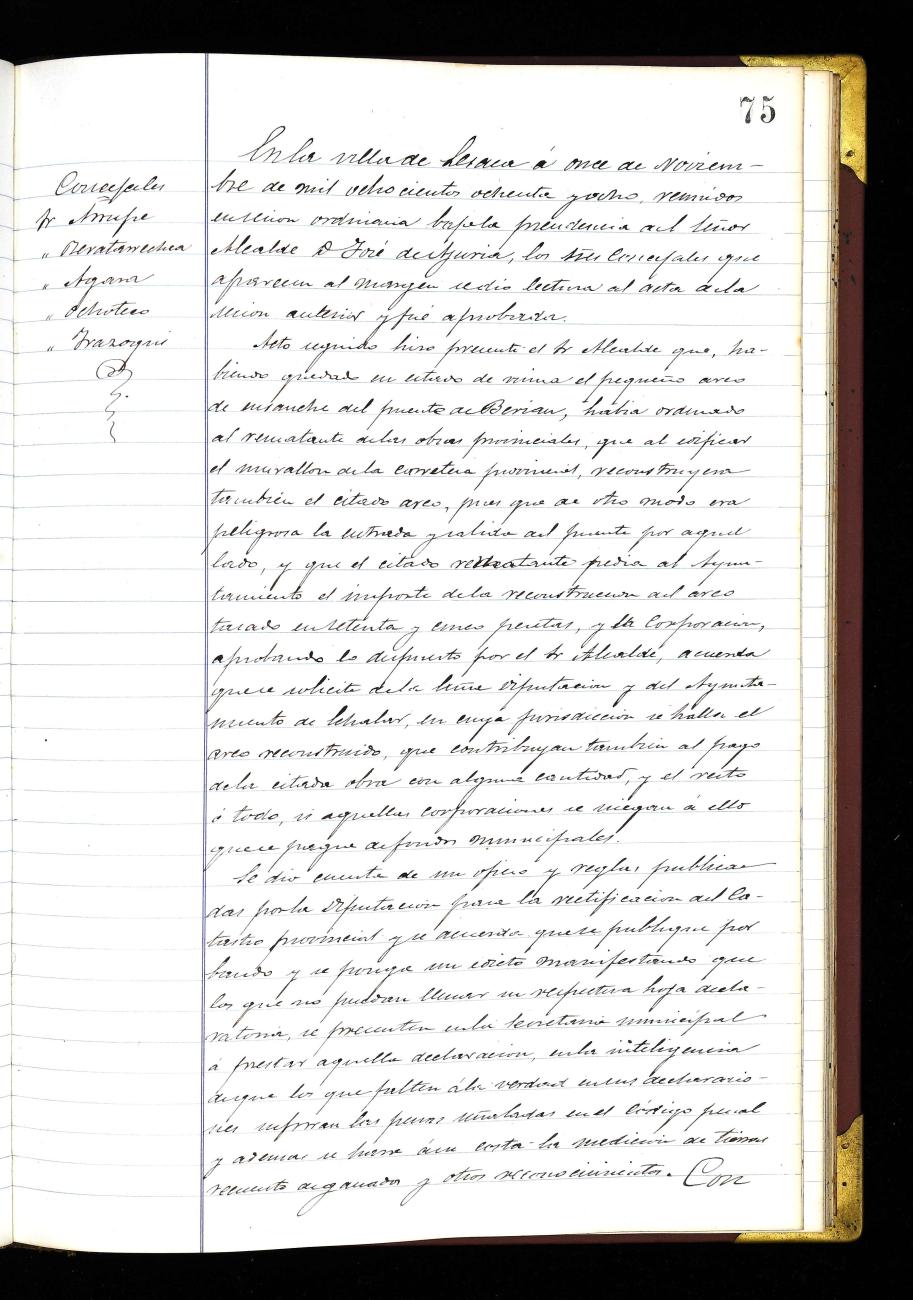 75
Concejales
Sr Arrupe
" Zeratarrechea
" Agara
" Ochoteco
" Irazoqui
En la villa de Lesaca á once de Noviem-
bre de mil ochocientos ochenta y ocho, reunidos
en sesion ordinaria bajo la presidencia del Señor
Alcalde D José de Azuria, los tres Concejales que
aparecen al margen se dio lectura al acta de la
sesion anterior y fué aprobada.
Acto seguido hizo presente el Sr Alcalde que, ha-
biendo quedado en estado de ruina el pequeño arco
de ensanche del puente de Berian, habia ordenado
al rematante de las obras provinciales, que al edificar
el murallon de la carretera provincial, reconstruyera
tambien el citado arco, pues que de otro modo era
peligrosa la entrada y salida del puente por aquel
lado, y que el citado rematante pedia al Ayun-
tamiento el importe de la reconstruccion del arco
tasado en setenta y cinco pesetas, y la Corporacion,
aprobando lo dispuesto por el Sr Alcalde, acuerda
que se solicite de la Excma Diputacion y del Ayunta-
miento de Echalar, en cuya jurisdiccion se halla el
arco reconstruido, que contribuyan tambien al pago
de la citada obra con alguna cantidad, y el resto
ó todo, si aquellas corporaciones se niegan á ello
que se pague de fondos municipales.
Se dio cuenta de un oficio y reglas publica-
das por la Diputacion para la rectificacion del Ca-
tastro provincial y se acuerda que se publique por
bando y se ponga un edicto manifestando que
los que no puedan llenar su respectiva hoja decla-
ratoria, se presenten en la Secretaria municipal
á prestar aquella declaracion, en la inteligencia
de que los que falten á la verdad en sus declaracio-
nes sufriran las penas señaladas en el Código penal
y ademas se hará á su costa la medicion de tierras
recuento de ganados y otros reconocimientos. Con